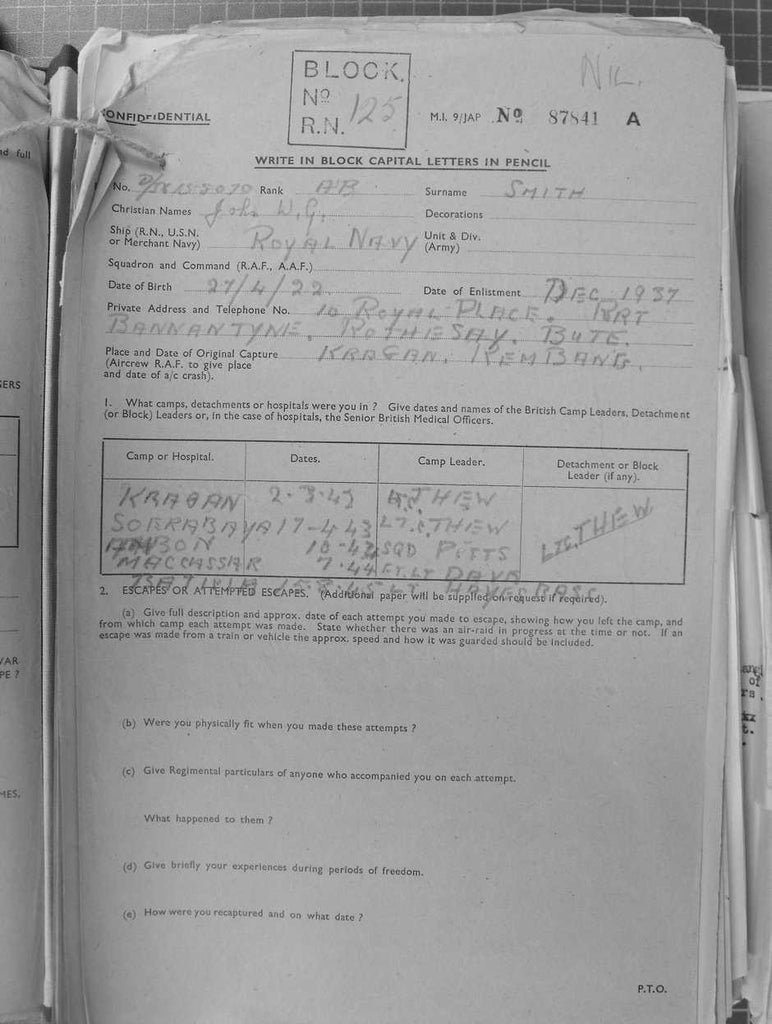 BLOCK.
Nº 125
R.N.
NIL.
CONFIDENTIAL
M.I. 9/JAP Nº 87841 A
WRITE IN BLOCK CAPITAL LETTERS IN PENCIL
nd full
No. Rank AB Surname SMITH
Christian Names John W.G. Decorations
Ship (R.N., U.S.N. or Merchant Navy) ROYAL NAVY Unit & Div. (Army)
Squadron and Command (R.A.F., A.A.F.)
Date of Birth 27/4/22 Date of Enlistment DEC 1937
Private Address and Telephone No. 10 ROYAL PLACE. PRT
BANNANTYNE. ROTHESAY. BUTE.
Place and Date of Original Capture KRAGAN. REMBANG.
(Aircrew R.A.F. to give place
and date of a/c crash).
ERS
1. What camps, detachments or hospitals were you in ? Give dates and names of the British Camp Leaders, Detachment
(or Block) Leaders or, in the case of hospitals, the Senior British Medical Officers.
Camp or Hospital. Dates. Camp Leader. Detachment or Block Leader (if any).
KRAGAN 2-3-43 THEW
SOERABAYA 17-4-43 LT. THEW LTC. THEW
10-43 SQD PITTS
MACCASSAR 7.44 FT.LT
2. ESCAPES OR ATTEMPTED ESCAPES. (Additional paper will be supplied on request if required).
(a) Give full description and approx. date of each attempt you made to escape, showing how you left the camp, and
from which camp each attempt was made. State whether there was an air-raid in progress at the time or not. If an
escape was made from a train or vehicle the approx. speed and how it was guarded should be included.
VAR
PE ?
(b) Were you physically fit when you made these attempts ?
(c) Give Regimental particulars of anyone who accompanied you on each attempt.
MES.
What happened to them ?
(d) Give briefly your experiences during periods of freedom.
(e) How were you recaptured and on what date ?
P.T.O.
of
rs.
t.